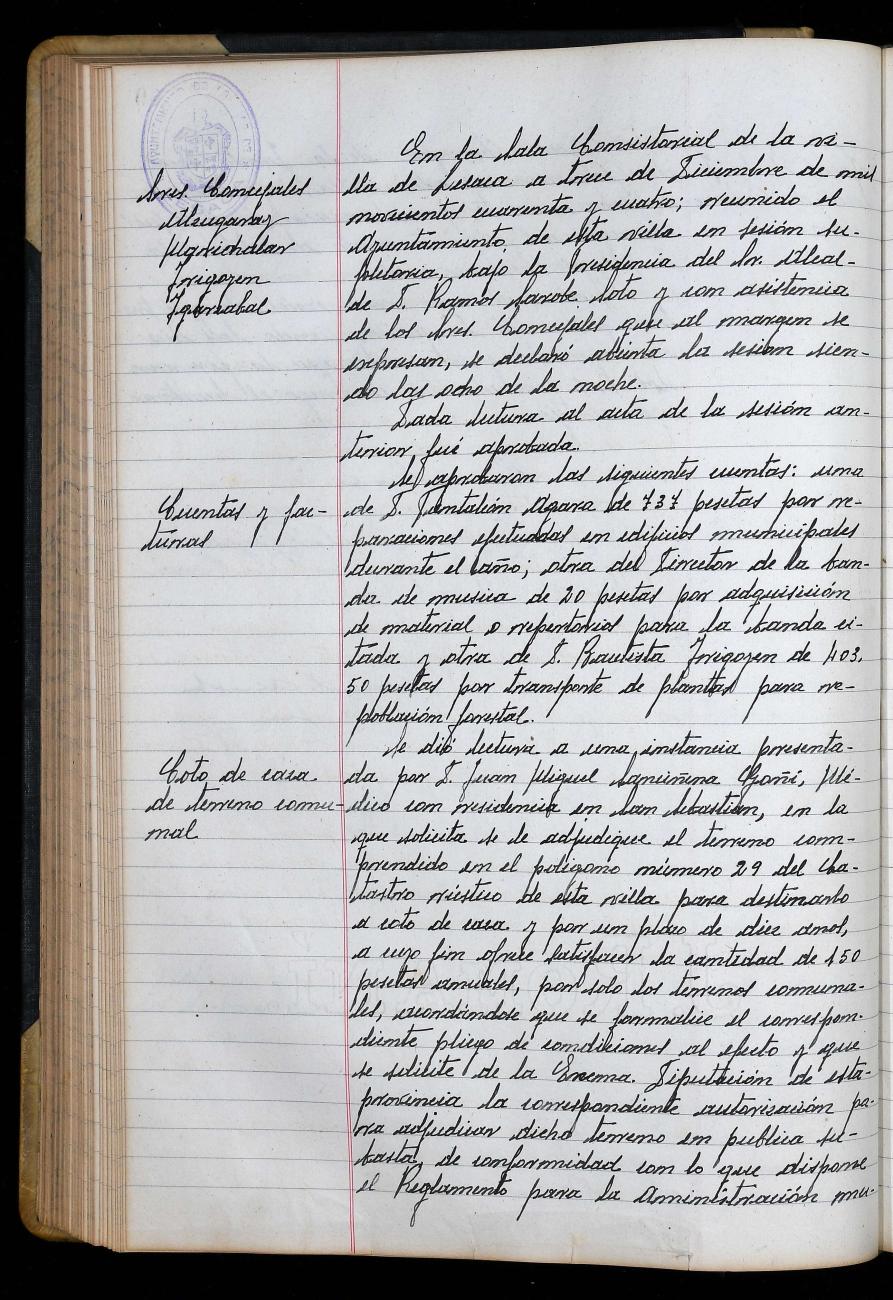 En la Sala Consistorial de la vi-
Sres. Concejales
lla de Lesaca a trece de Diciembre de mil
Alzugaray
novecientos cuarenta y cuatro; reunido el
Marichalar
Ayuntamiento de esta villa en sesión su-
Irigoyen
pletoria, bajo la Presidencia del Sr. Alcal-
Igarzabal
de D. Ramos Sarobe Soto y con asistencia
de los Sres. Concejales que al margen se
expresan, se declaró abierta la sesion sien-
do las ocho de la noche.
Dada lectura al acta de la sesión an-
terior fué aprobada.
Se aprobaron las siguientes cuentas: una
Cuentas y fac-
turas
de D. Pantalión Agara de 737 pesetas por re-
paraciones efectuadas en edificios municipales
durante el año; otra del Director de la ban-
da de musica de 20 pesetas por adquisición
de material o repertorios para la banda ci-
tada y otra de D. Bautista Irigoyen de 403,
50 pesetas por transporte de plantas para re-
población forestal.
Se dió lectura a una instancia presenta-
Coto de caza
de terreno comu-
nal
da por D. Juan Miguel Goñi, Mé-
dico con residencia en San Sebastian, en la
que solicita se le adjudique el terreno com-
prendido en el poligono número 29 del Ca-
tastro rústico de esta villa para destinarlo
a coto de caza y por un plazo de diez anos,
a cuyo fin ofrece satisfacer la cantidad de 150
pesetas anuales, por solo los terrenos comuna-
les, acordándose que se formalice el correspon-
diente pliego de condiciones al efecto y que
se solicite de la Excma. Diputación de esta
provincia la correspondiente autorización pa-
ra adjudicar dicho terreno en publica su-
basta, de conformidad con lo que dispone
el Reglamento para la Aministración mu-